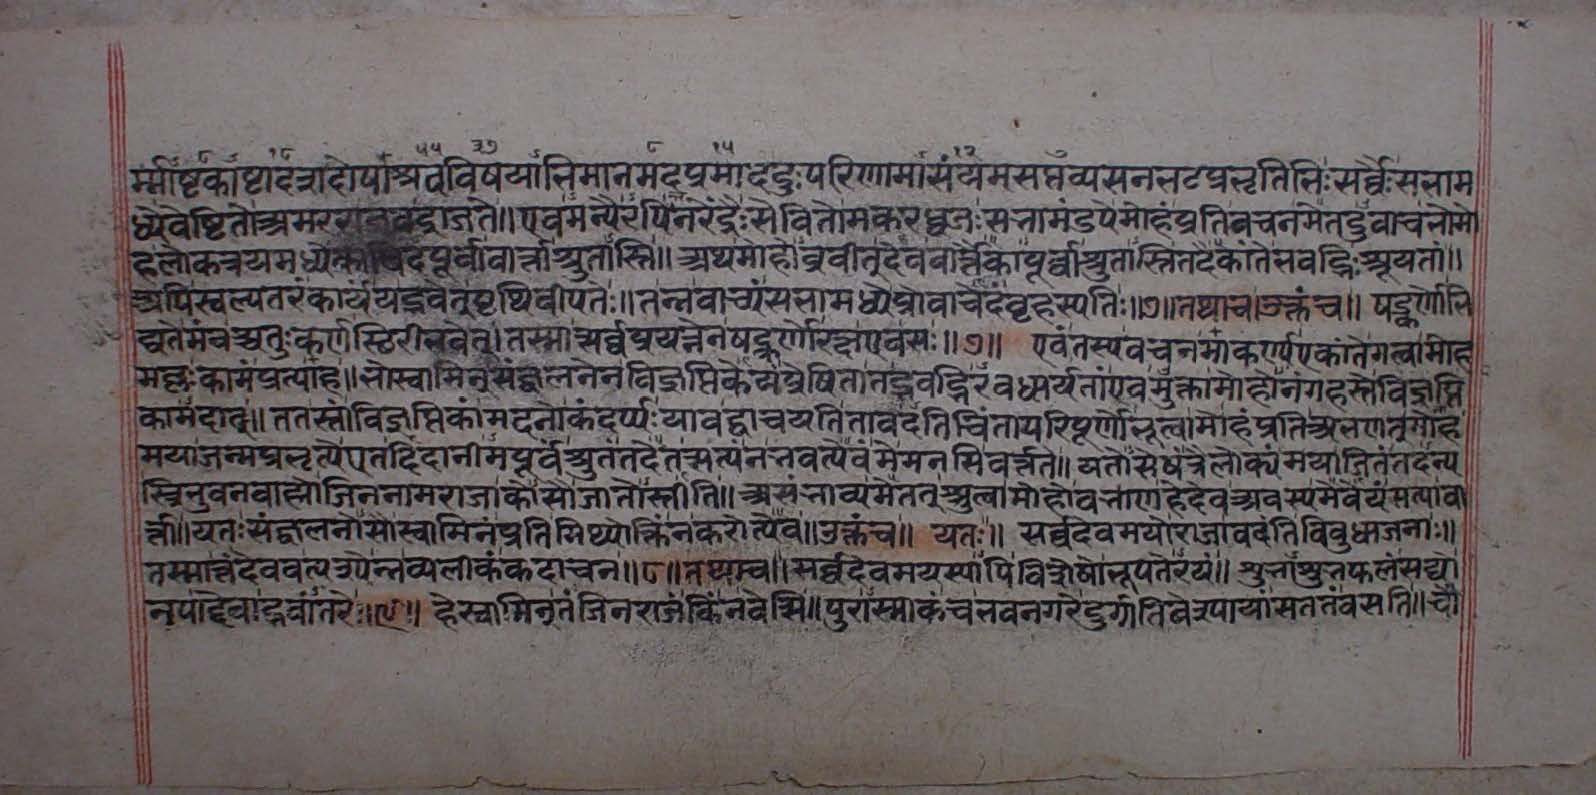 ८ १८ ५५ ३७ ८ १५ १२ ७
र्म्माष्टकाष्टादशदोषाश्रवविषयाभिमानमदप्रमाददुःपरिणामासंयमसप्तव्यसनभटप्रभृतिभिः सर्वैः सभाम
ध्येवेष्टितोअमरराजवद्राजते॥ एवमन्यैरपिनरेंद्रैः सेवितोमकरध्वजः सभामंडपेमोहंप्रतिवचनमेतदुवाच भोमो
हलोकत्रयमध्ये पूर्वावार्त्ताश्रुतास्ति॥ अथमोहोब्रवीत् देववार्त्तैकापूर्व्वाश्रुतास्तितदेकांतेभवद्भिः श्रूयतां॥
अपिस्वल्पतरंकार्यंयद्भवेत्पृथिवीपतेः॥ तन्नवाच्यंसभामध्येप्रोवाचेदंबृहस्पतिः॥७॥ तथाच॥ उक्तंच॥ षट्कर्णोभि
द्यतेमंत्रश्चतुःकर्णस्थिरीभवेत्। तस्मात्सर्व्वप्रयत्नेनषट्कर्णोरक्ष्यएवसः॥७॥ एवंतस्यवचनमाकर्ण्यएकांतेगत्वामोह
मल्लःकामंप्रत्याह॥ भोस्वामिन्संज्वलनेनविज्ञप्तिकेयंप्रेषितातद्भवद्भिरवधार्यतांएवमुक्तामोहोनंगहस्तेविज्ञप्ति
कामदात्॥ ततस्तांविज्ञप्तिकांमदनोकंदर्प्पः यावद्वाचयतितावदतिचिंतापरिपूर्णोभूत्वामोहंप्रतिअभणत्मोह
मयाजन्मप्रभृत्येएतदिदानीमपूर्वंश्रुतंतदेतत्सत्यंनभवत्येवंमेमनसिवर्त्तते॥ यतोसेषंत्रैलोक्यंमयाजितंतदन्य
स्त्रिभुवनबाह्योजिननामराजाकोसौजातोस्तीति॥ असंभाव्यमेतत्श्रुत्वामोहोवभाणहेदेवअवस्यमेवेयंसत्यावा
र्त्ता॥ यतः संज्वलनोसौस्वामिनंप्रतिमिथ्योक्तिंनकरोत्येव॥ उक्तंच॥ यतः॥ सर्वदेवमयोराजावदंतिविबुधाजनाः॥
तस्मात्तंदेववत्पश्येन्नव्यलीकंकदाचन॥८॥ तथाच॥ सर्व्वदेवमयस्यापिविशेषोभूपतेरयं॥ शुभाशुभफलंसद्यो
नृपाद्देवाद्भवांतरे॥९॥ हेस्वामिन्तंजिनराजंकिंनवेत्सि॥ पुरास्माकंचभवनगरेदुर्गतिवेश्यायांसततंवसति॥ चौ